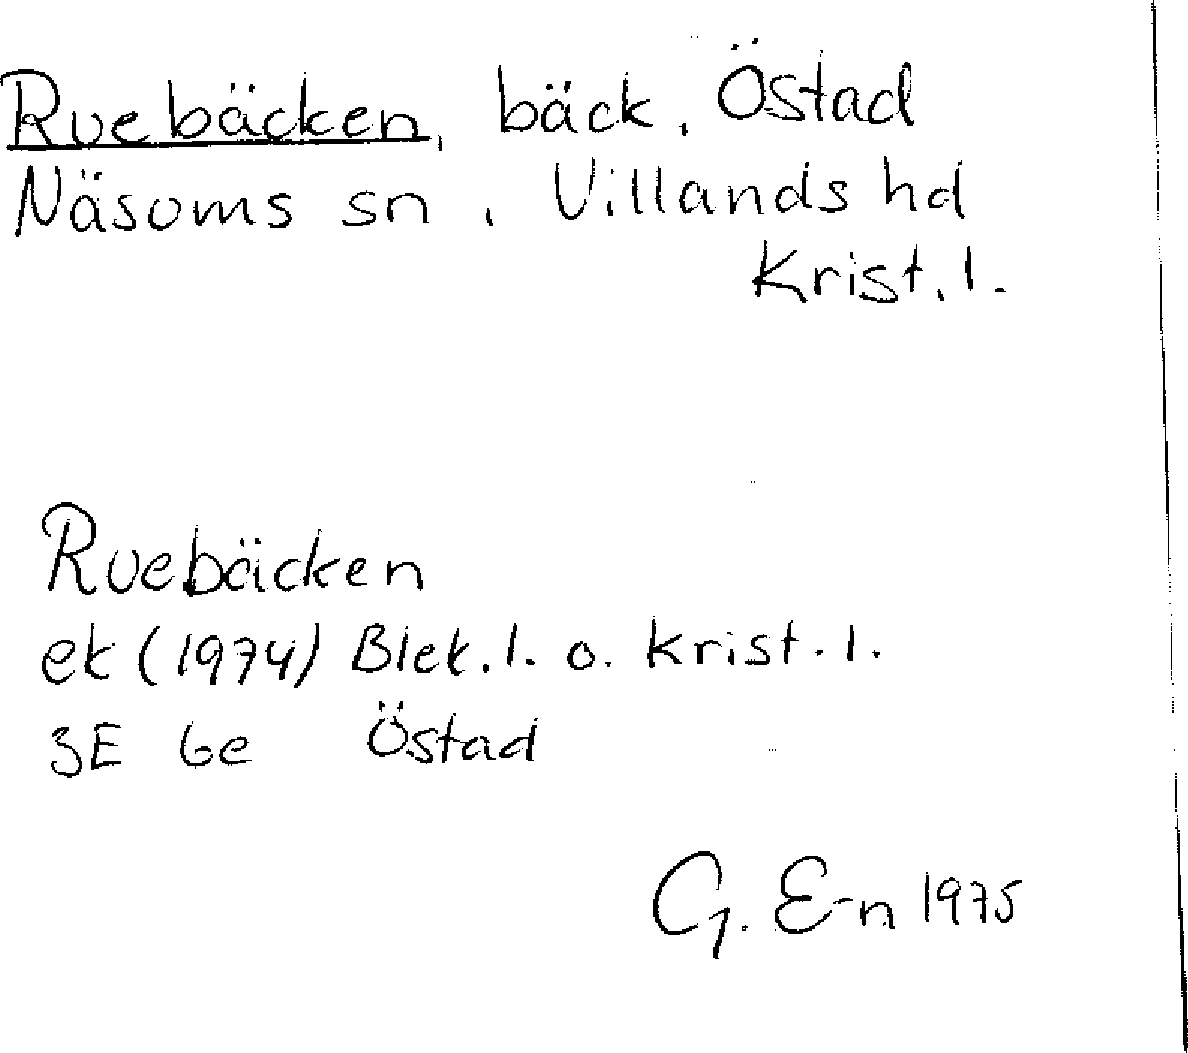 Ruebäcken, bäck, Östad
Näsums sn, Villands hd
Krist.l.
Ruebäcken
ek (1974) Blek.l. o. Krist.l.
3E 6e Östad
G. E-n 1975